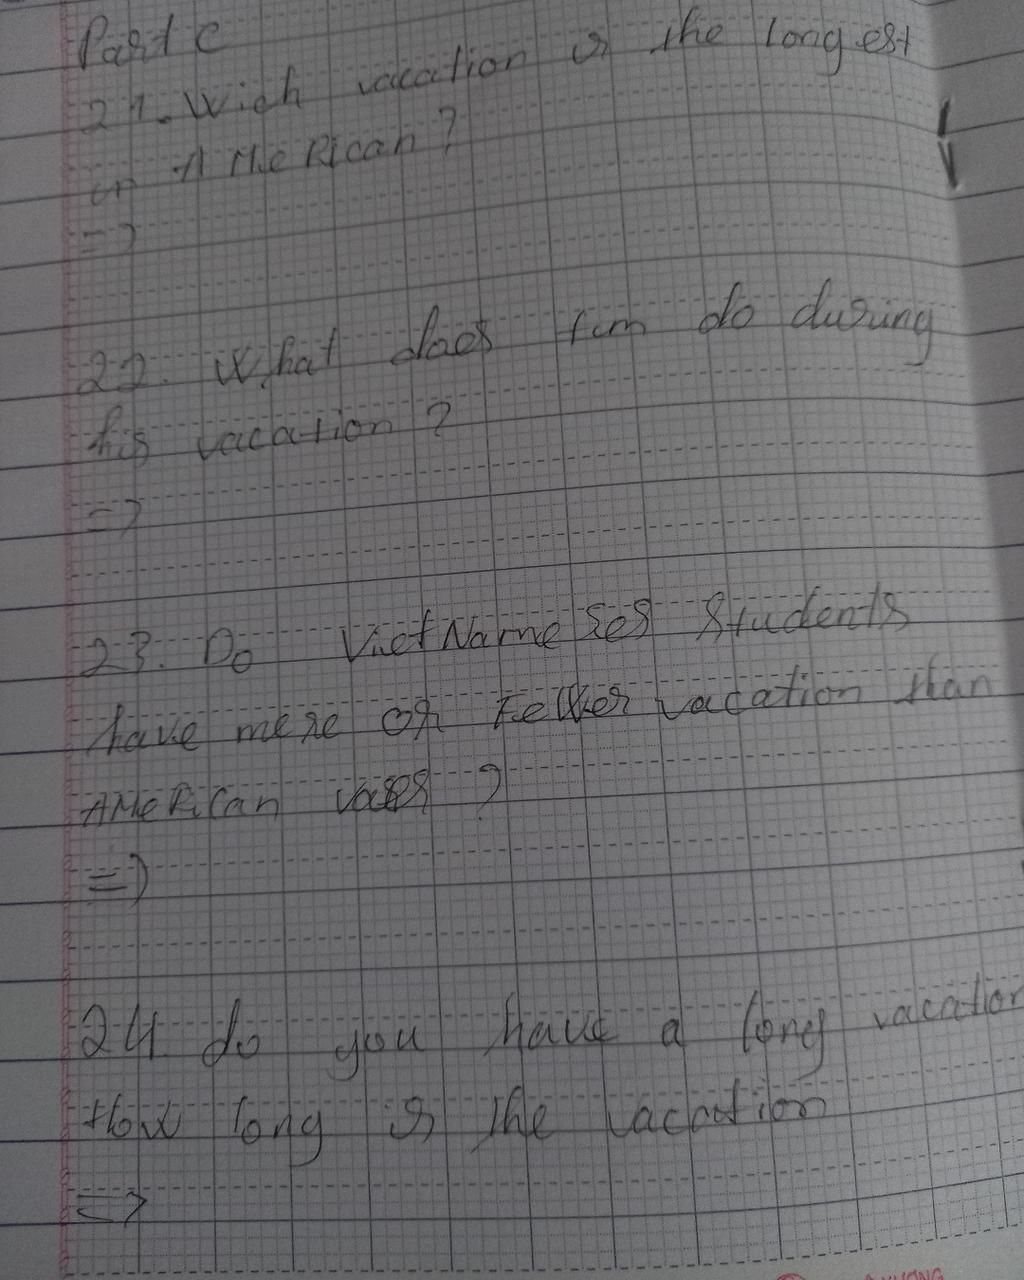 Part c
21. Wich vacation is the longest
in AMeRican?
=>
22. What does tim do during
his vacation?
=>
23. Do VietNameses Students
have more or Fewer vacation than
AMeRican
=>
24 do you have a long vacation
How long is the vacation
=>